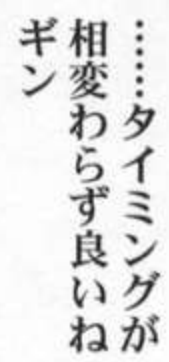 ……タイミングが
相変わらず良いね
ギン